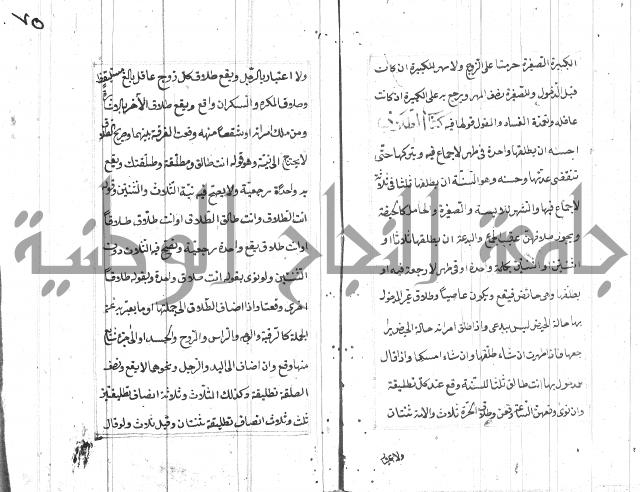 الكبيرة الصغيرة حرمتا على الزوج ولا مهر للكبيرة ان كانت
قبل الدخول وللصغيرة نصف المهر ويرجع به على الكبيرة ان كانت
عاقلة وتعمدت الفساد والقول قولها فيه كتاب الطلاق
احسنه ان يطلقها واحدة في طهر لا جماع فيه ويتركها حتى
تنقضي عدتها وحسنه وهو السنة ان يطلقها ثلثا في ثلثة
لا جماع فيها والشهر للآيسة والصغيرة والحامل كالحيضة
ويجوز طلاقهن عقيب الجماع والبدعة ان يطلقها ثلاثا او
اثنتين بكلمة واحدة او في طهر لا رجعة فيه او
يطلقها وهي حائض فيقع ويكون عاصيا وطلاق غير المدخول
بها حالة الحيض ليس ببدعي واذا طلق امراته حالة الحيض يرا
جعها فاذا طهرت ان شاء طلقها وان شاء امسكها واذا قال
لمدخول بها انت طالق ثلثا للسنة وقع عند كل تطليقة
وان نوى وقوعهن الساعة وقعن وطلاق الحرة ثلاث والامة ثنتان
ولا اعتبار
ولا اعتبار بالرجل ويقع طلاق كل زوج عاقل بالغ مستيقظ
وطلاق المكره والسكران واقع ويقع طلاق الاخرس بالاشارة
ومن ملك امراته او شقصا منها وقعت الفرقة بينهما وصريح الطلاق
لا يحتاج الى نية وهو قوله انت طالق ومطلقة وطلقتك ويقع
به واحدة رجعية ولا يصح فيه نية الثلاث والثنتين وقوله
انت الطلاق وانت طالق الطلاق او انت طلاق طلاقا
او انت طلاق يقع واحدة رجعية وتصح فيه الثلاث دون
الثنتين ولو نوى بقوله انت طلاق واحدة وبقوله طلاقا
اخرى وقعتا واذا اضاف الطلاق الى جملتها او ما يعبر به عن
الجملة كالرقبة والوجه والراس والروح والجسد او الى جزء شائع
منها وقع وان اضاف الى اليد والرجل ونحوها لا يقع ونصف
الطلقة تطليقة وكذلك الثلاث وثلاثة انصاف تطليقتين
ثلث وثلاث انصاف تطليقة ثنتان وقيل ثلاث ولو قال
جامعة النجاح الوطنية